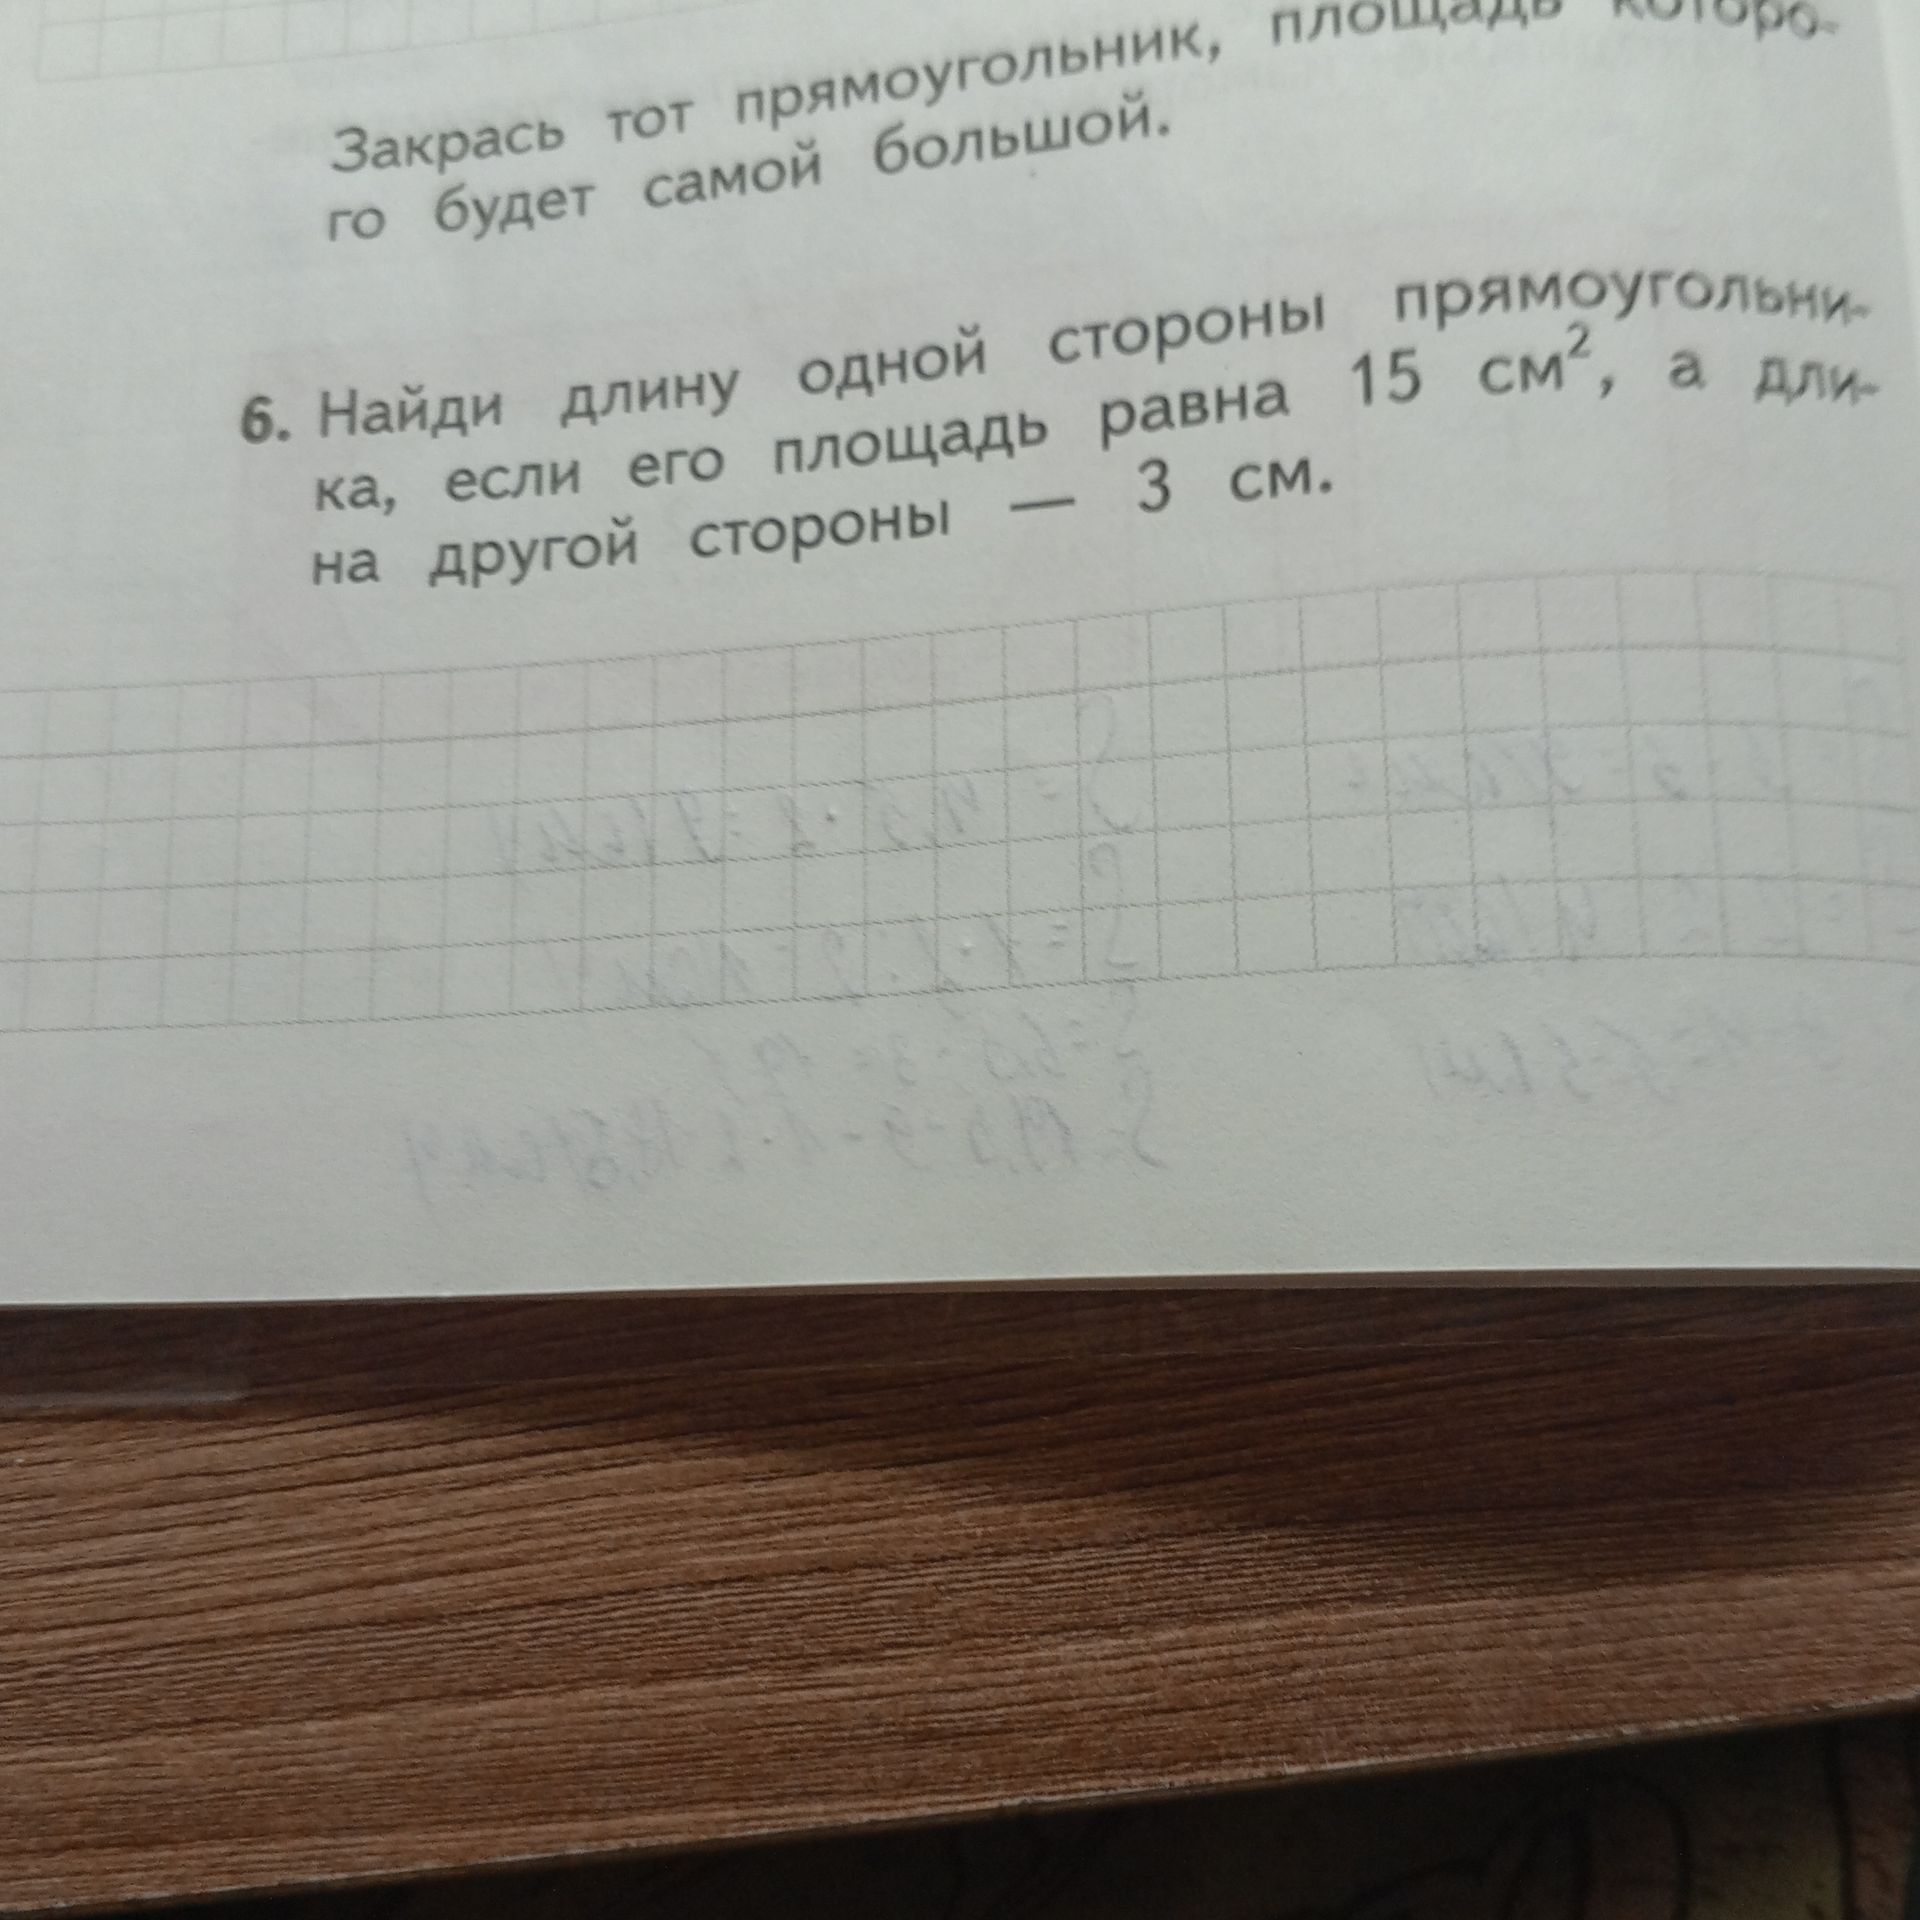 Закрась тот прямоугольник, площадь которо-
го будет самой большой.
6. Найди длину одной стороны прямоугольни-
ка, если его площадь равна 15 см², а дли-
на другой стороны — 3 см.